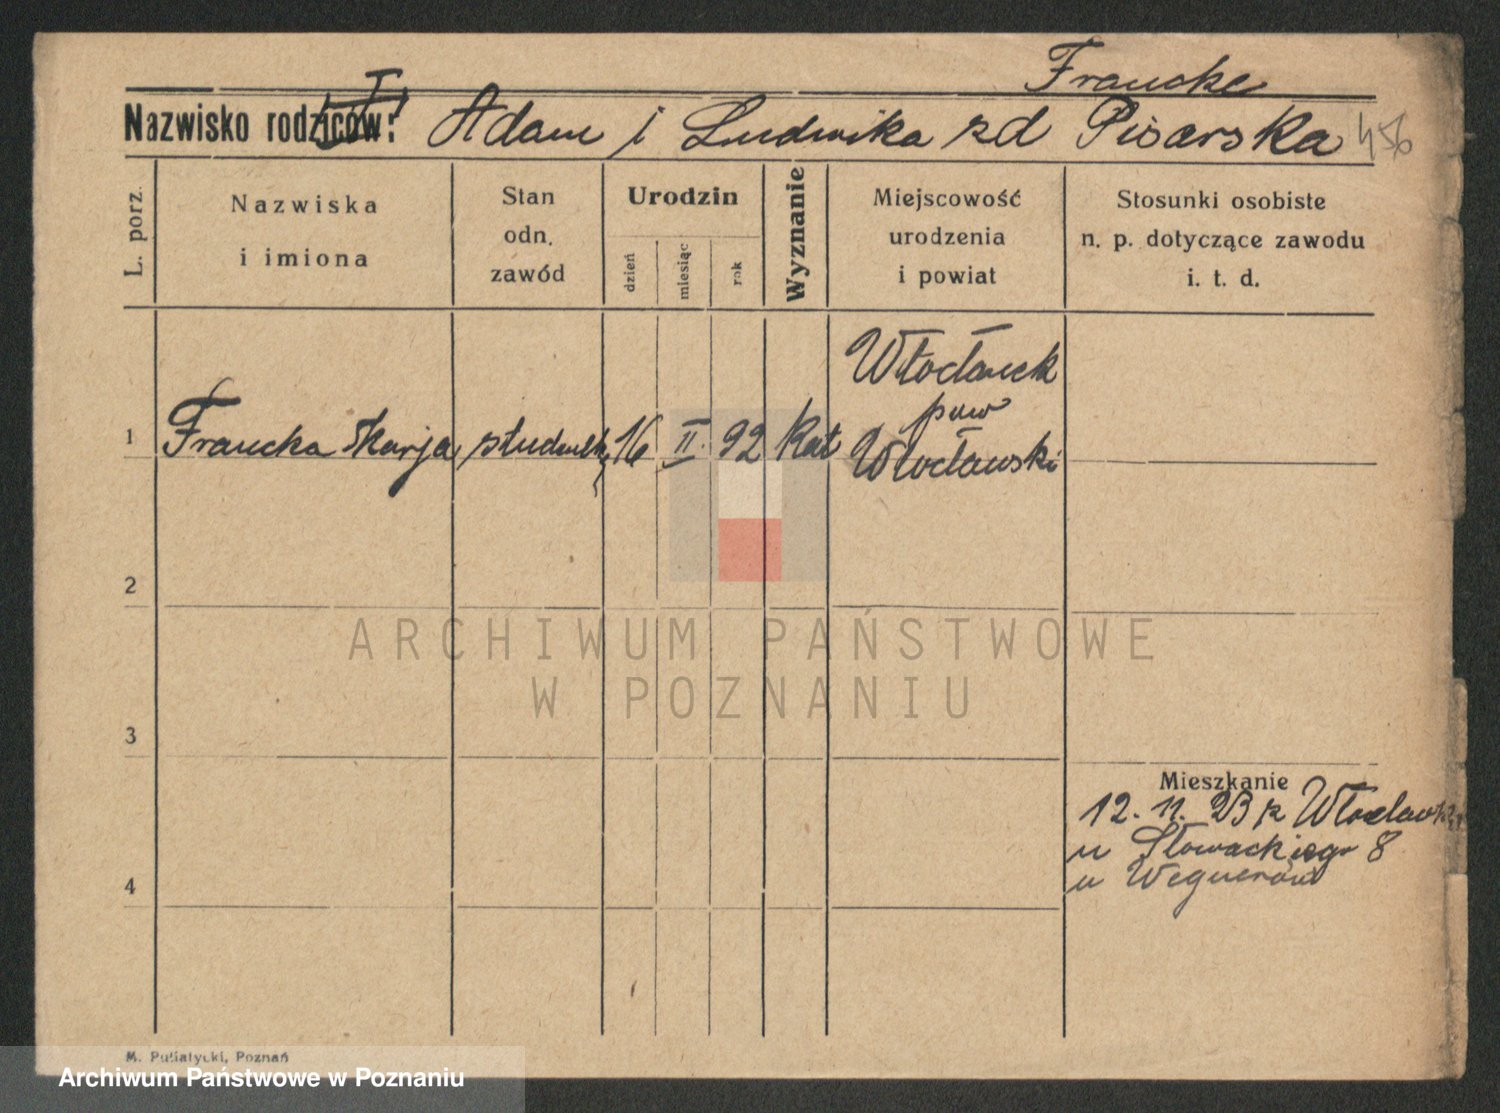 Francke
Nazwisko rodziców: Adam i Ludwika zd Pisarska 456
L. porz.
Nazwiska
i imiona
Stan
odn.
zawód
Urodzin
dzień
miesiąc
rok
Wyznanie
Miejscowość
urodzenia
i powiat
Stosunki osobiste
n. p. dotyczące zawodu
i. t. d.
1 Francka Marja studentka 16 II. 92 Kat
Włocławek
pow
Włocławski
2
ARCHIWUM PAŃSTWOWE
W POZNANIU
3
Mieszkanie
12. 11. 23 z Włocławka
u Słowackiego 8
u Wegnerów
4
M. Putiatycki, Poznań
Archiwum Państwowe w Poznaniu